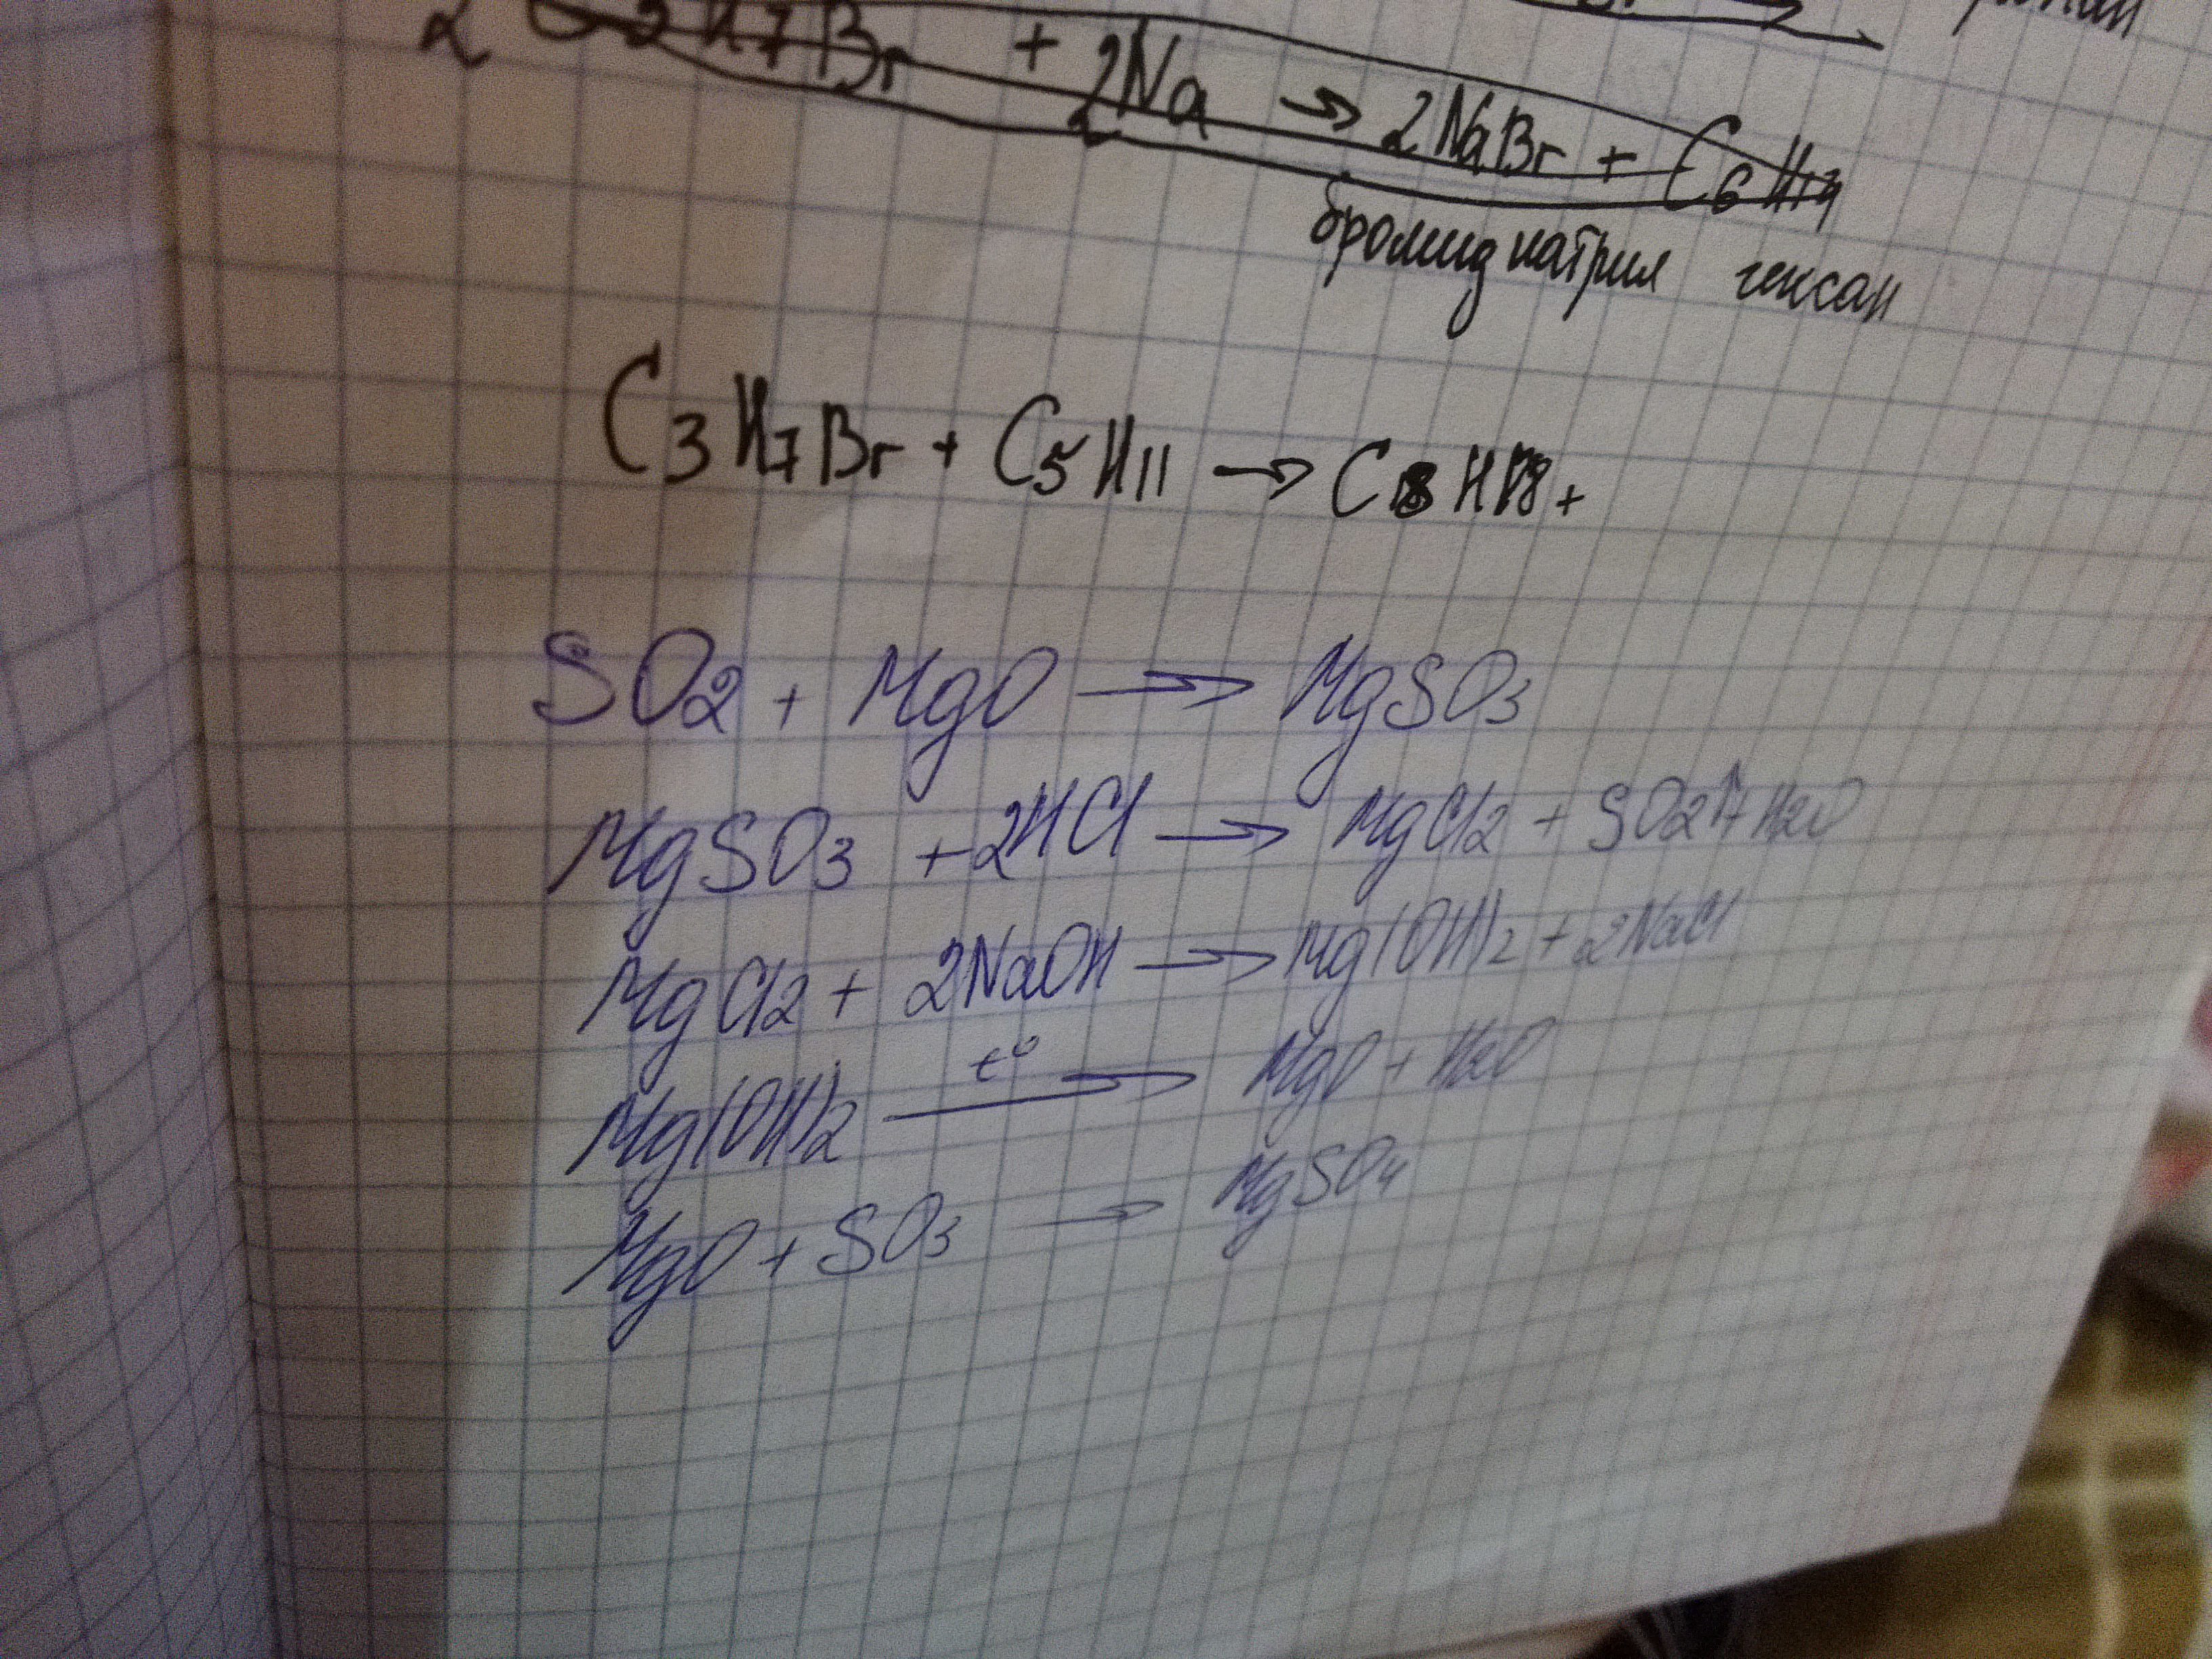 2 C3H7Br + 2Na → 2NaBr + C6H14
бромид натрия гексан
C3H7Br + C5H11 → C8H18 +
SO2 + MgO → MgSO3
MgSO3 + 2HCl → MgCl2 + SO2↑ + H2O
MgCl2 + 2NaOH → Mg(OH)2 + 2NaCl
Mg(OH)2 t° → MgO + H2O
MgO + SO3 → MgSO4